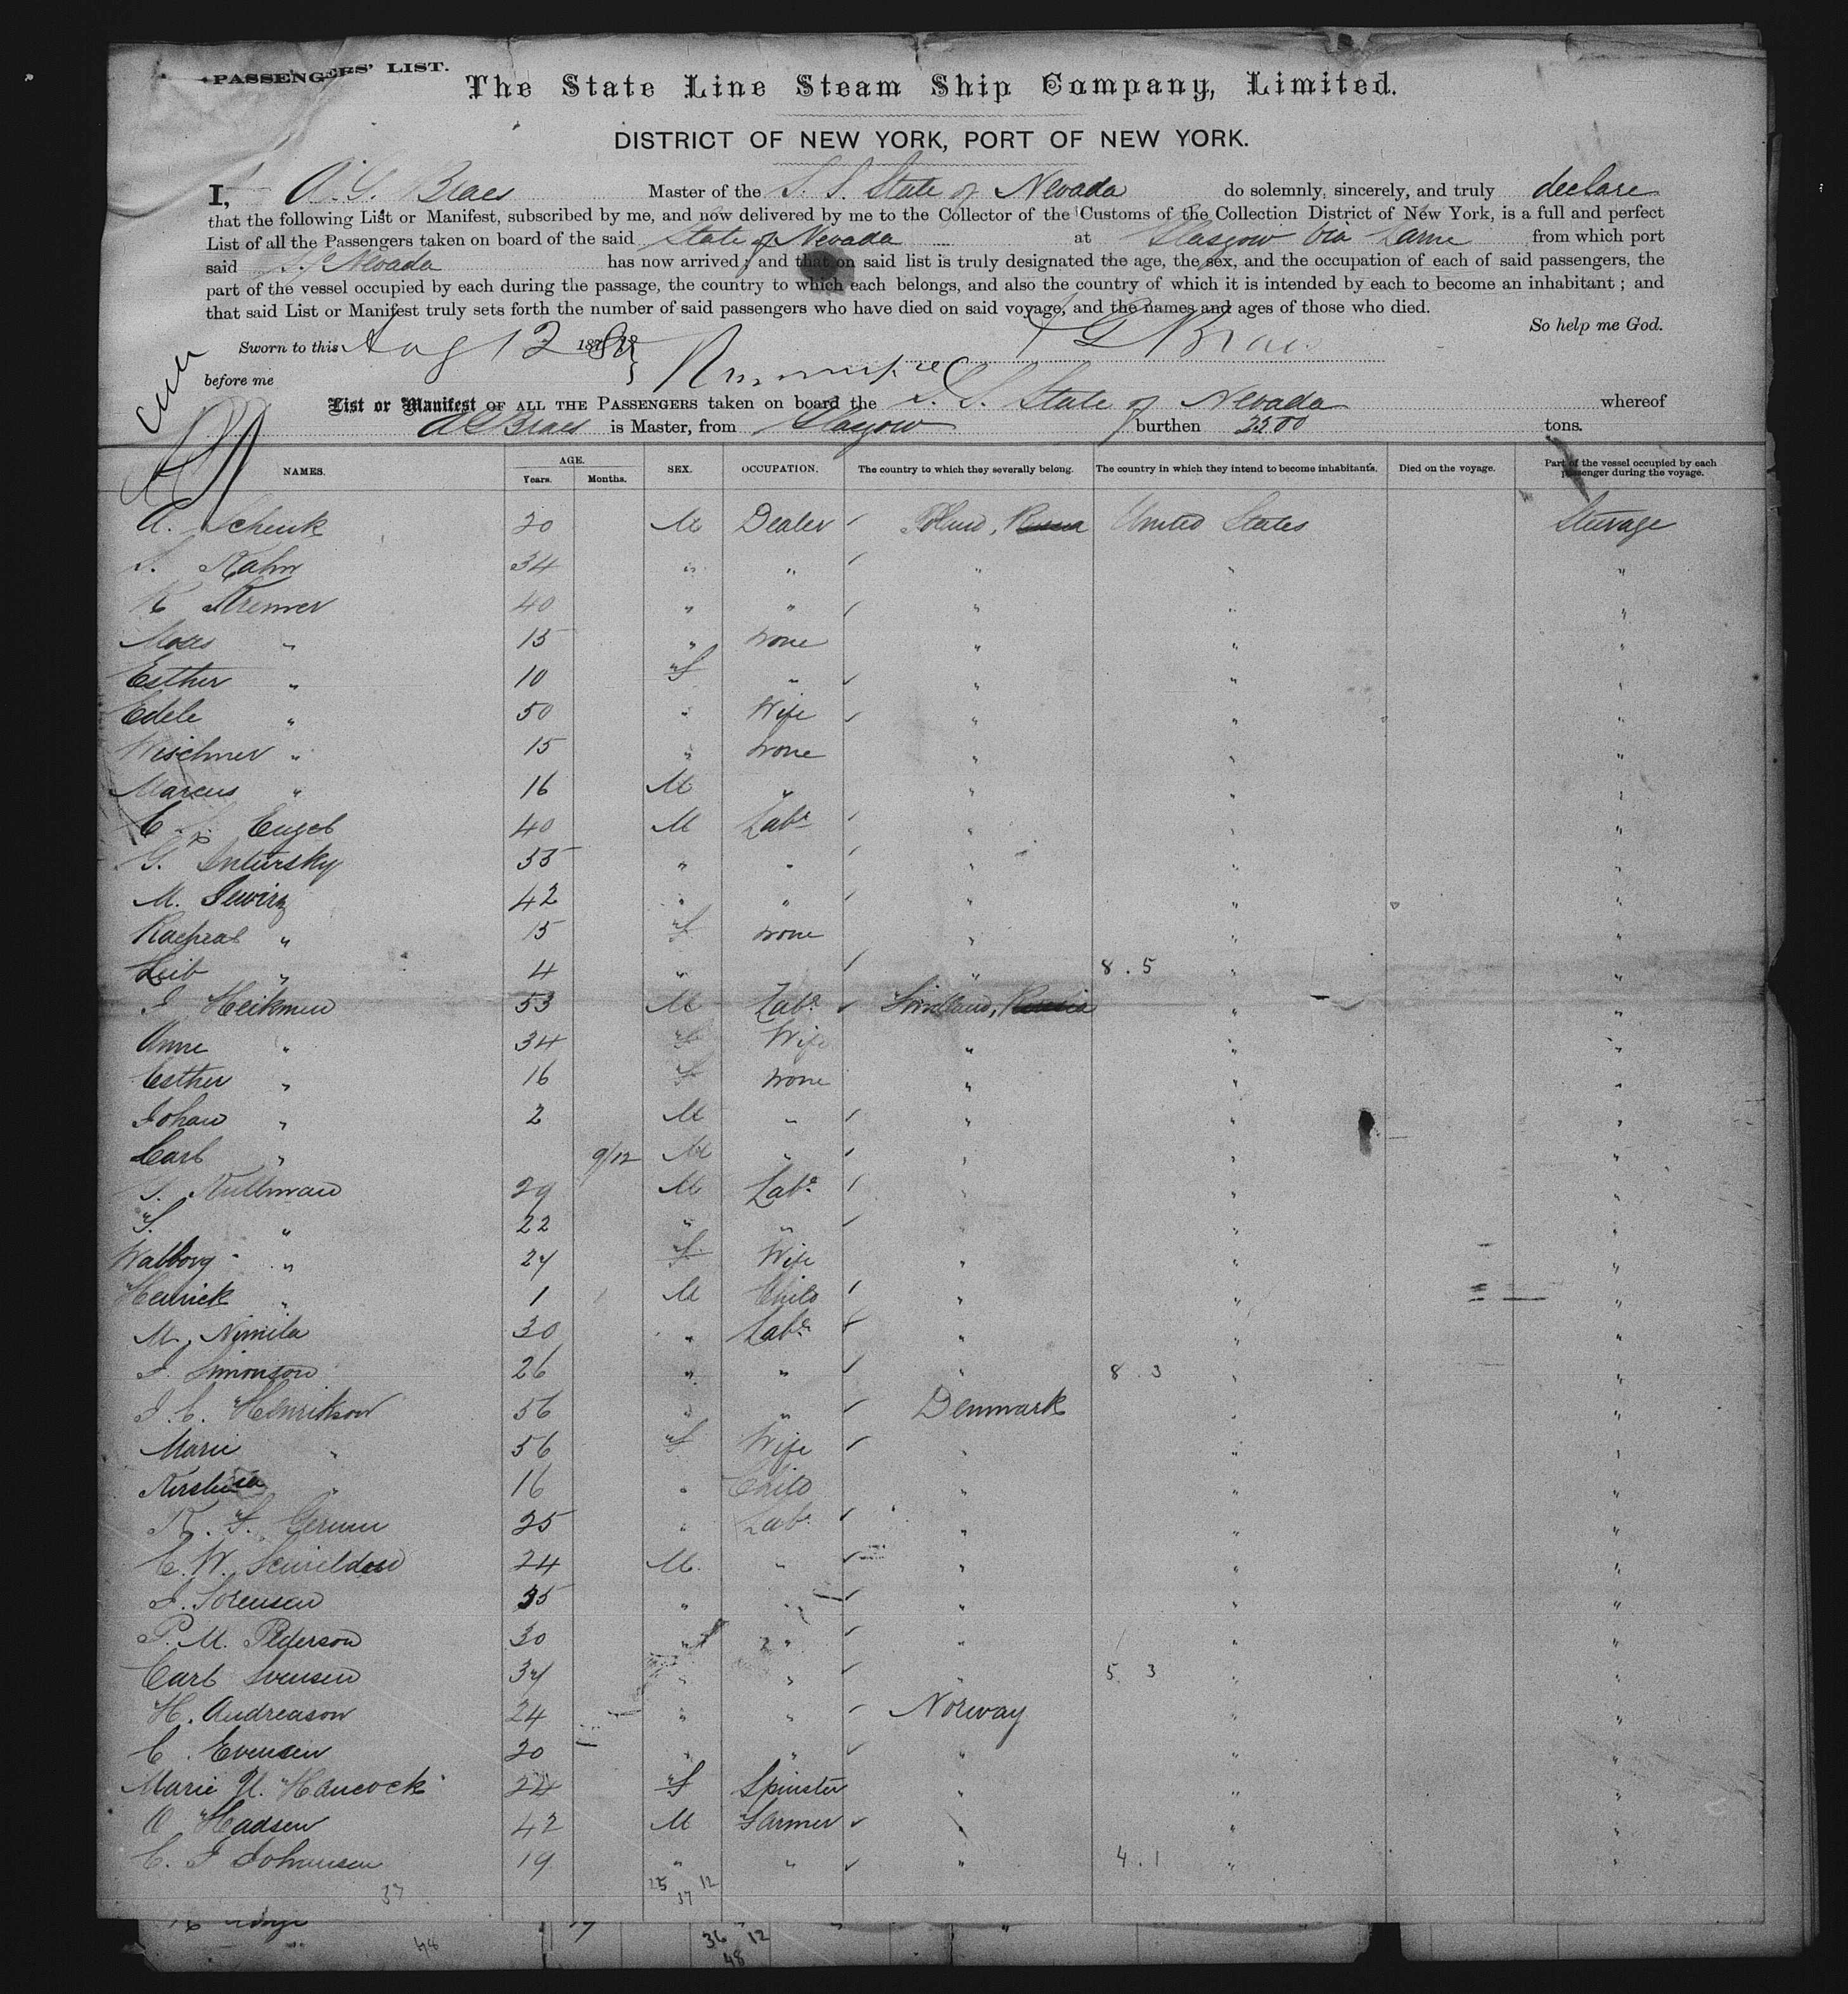 PASSENGERS' LIST.
The State Line Steam Ship Company, Limited.
DISTRICT OF NEW YORK, PORT OF NEW YORK.
I, A. G. Braes Master of the S. S. State of Nevada do solemnly, sincerely, and truly declare
that the following List or Manifest, subscribed by me, and now delivered by me to the Collector of the Customs of the Collection District of New York, is a full and perfect
List of all the Passengers taken on board of the said State of Nevada at Glasgow via Larne from which port
said S. S. Nevada has now arrived; and that on said list is truly designated the age, the sex, and the occupation of each of said passengers, the
part of the vessel occupied by each during the passage, the country to which each belongs, and also the country of which it is intended by each to become an inhabitant; and
that said List or Manifest truly sets forth the number of said passengers who have died on said voyage, and the names and ages of those who died.
So help me God.
Sworn to this Aug 12 187 A G Braes
before me
List or Manifest OF ALL THE PASSENGERS taken on board the S. S. State of Nevada whereof
A G Braes is Master, from Glasgow burthen 2500 tons.
NAMES. AGE. Years. Months. SEX. OCCUPATION. The country to which they severally belong. The country in which they intend to become inhabitants. Died on the voyage. Part of the vessel occupied by each passenger during the voyage.
A. Schenk 20 M Dealer Poland, Russia United States Steerage
S. Kahn 34 " " " " "
K Kremer 40 " " " " "
Moses " 15 " none " " "
Esther " 10 F " " " "
Edele " 50 " Wife " " "
Wischner " 15 " none " " "
Marcus " 16 M " " " "
C. Engel 40 M Labr " " "
G. Intursky 35 " " " " "
M. Gewirz 42 " " " " "
Racheal " 15 F none " " "
Leib " 4 " " 8.5 " "
I Heikmen 53 M Labr Finnland, Russia " "
Anne " 34 F Wife " " "
Esther " 16 F none " " "
Johan " 2 M " " " "
Carl " 9/12 M " " " "
G. Kullman 29 M Labr " " "
S. " 22 " " " " "
Walborg " 24 F Wife " " "
Henrick " 1 M Child " " "
M. Nimila 30 " Labr " " "
I. Simonson 26 " " " 8.3 " "
J. C. Henrikson 56 " " Denmark " "
Marie " 56 F Wife " " "
" 16 " Child " " "
K. F. 25 " Labr " " "
C. W. 24 M " " " "
J. Sorensen 35 " " " " "
P. M. Pederson 30 " " " " "
Carl Svensen 34 " " " 5 3 " "
H. Andreason 24 " " Norway " "
C. Evensen 20 " " " " "
Marie U. Hancock 24 F Spinster " " "
O Hadsen 42 M Farmer " " "
C. J Johansen 19 " " " 4.1 " "
37 25 12
37
17
48 36 12
48